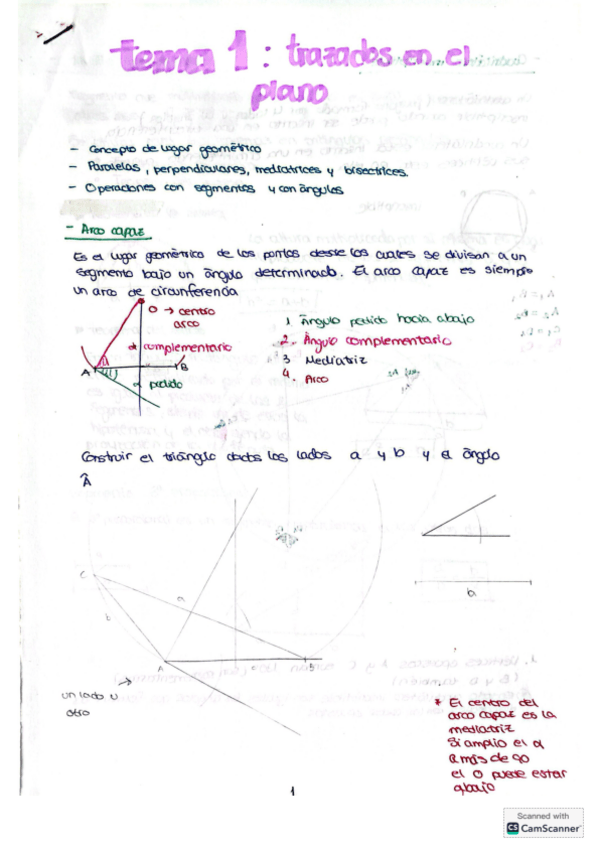 tema 1: trazados en el
plano
- Concepto de lugar geométrico
- Paralelas, perpendiculares, mediatrices y bisectrices.
- Operaciones con segmentos y con ángulos
- Arco capaz
Es el lugar geométrico de los puntos desde los cuales se divisan a un
segmento bajo un ángulo determinado. El arco capaz es siempre
un arco de circunferencia
O → centro
arco
α complementario
A
B
α pedido
1. Ángulo pedido hacia abajo
2. Ángulo complementario
3. Mediatriz
4. Arco
Construir el triángulo dados los lados a y b y el ángulo
Â
C
a
b
A
B
b
un lado u
otro
* El centro del
arco capaz es la
mediatriz
Si amplio el α
a más de 90
el O puede estar
abajo
1
Scanned with
CS CamScanner